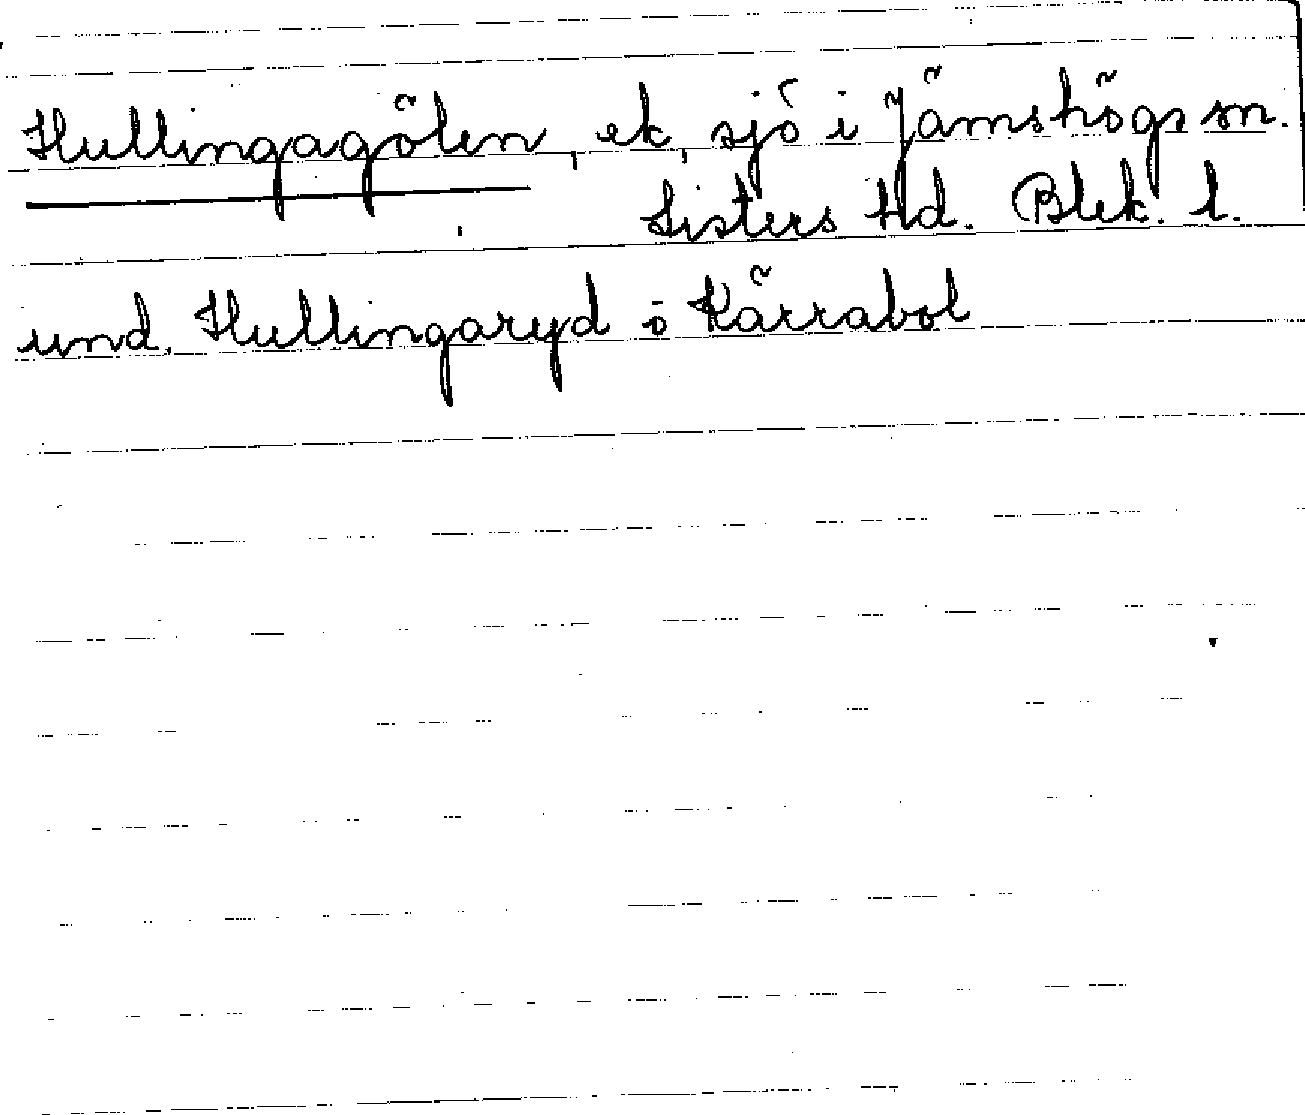 Hullingagölen, ek, sjö i Jämshögs sn.
Listers Hd. Blek. l.
und. Hullingaryd ö Kärrabol